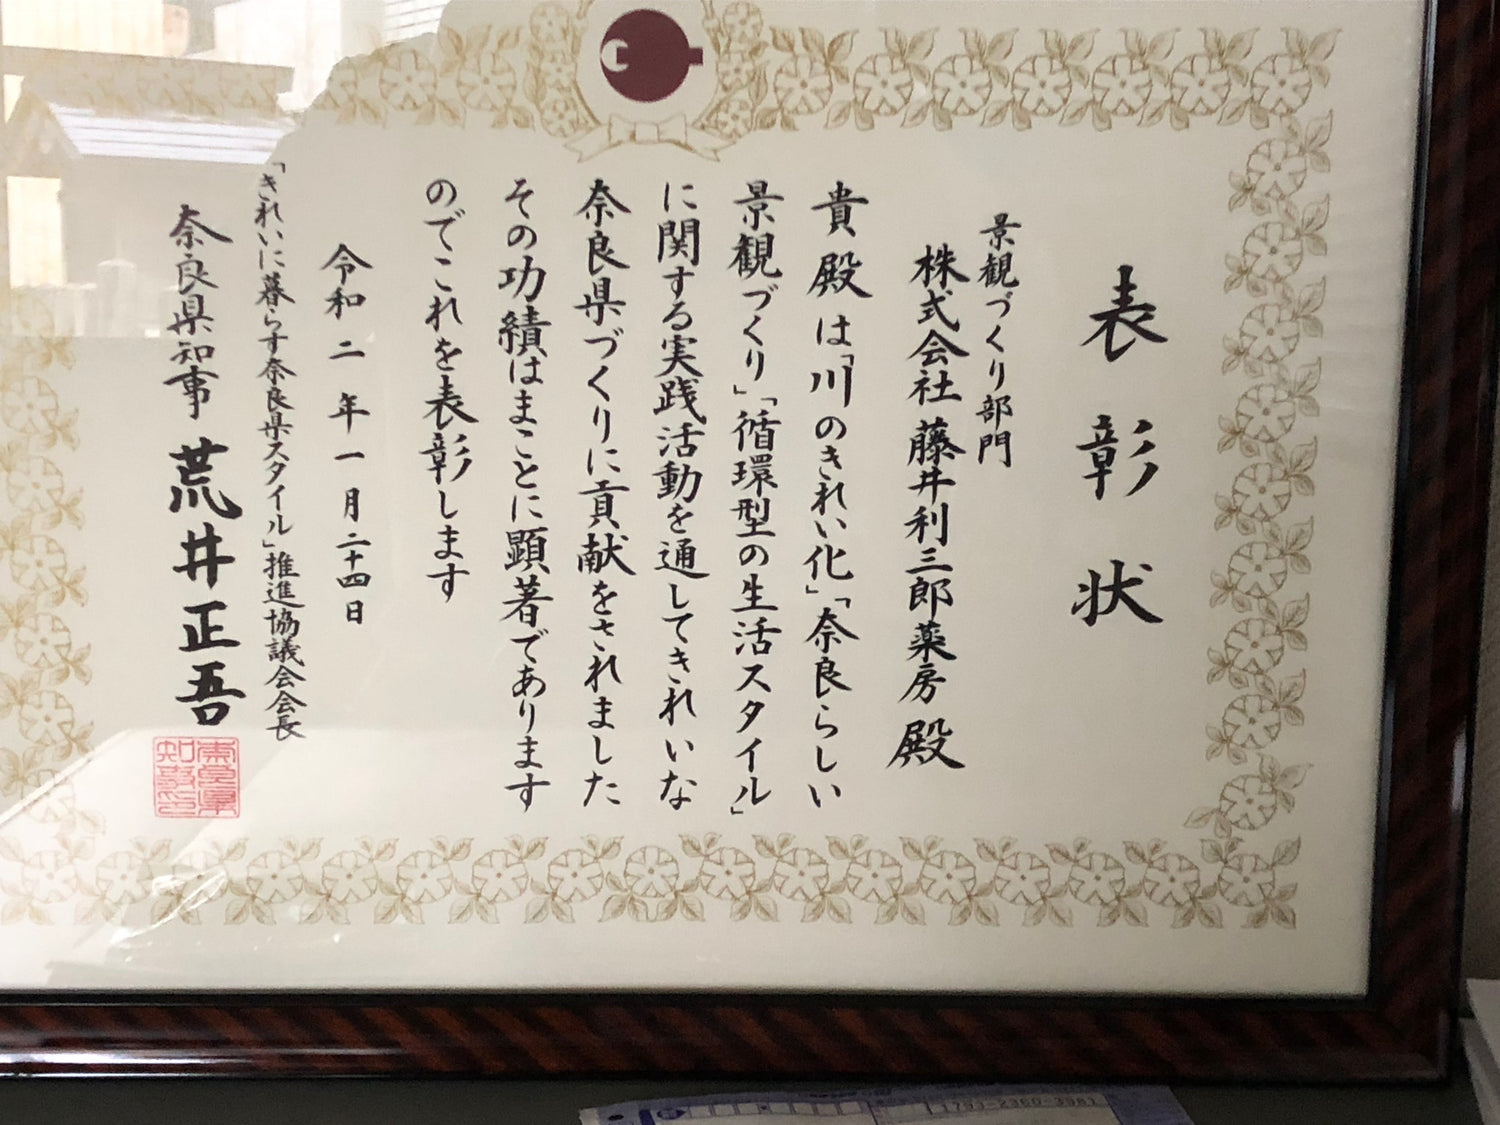 表彰状
景観づくり部門
株式会社 藤井利三郎薬房 殿
貴殿は「川のきれい化」「奈良らしい
景観づくり」「循環型の生活スタイル」
に関する実践活動を通してきれいな
奈良県づくりに貢献をされました
その功績はまことに顕著であります
のでこれを表彰します
令和二年一月二十四日
「きれいに暮らす奈良県スタイル」推進協議会会長
奈良県知事 荒井正吾
奈良県
知事印
1791-2360-3981